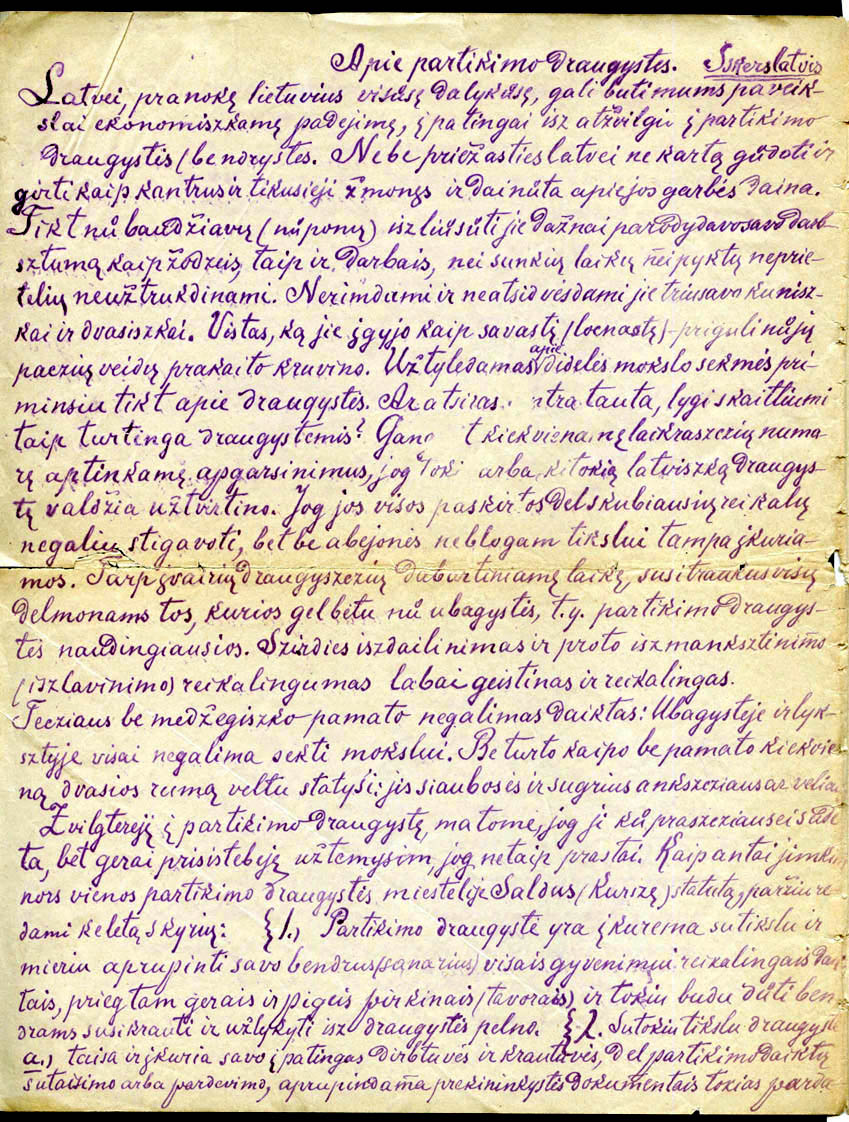 Apie partikimo draugystes. Isz kers latvio
Latvei, pranokę lietuvius visůsę dalykůsę, gali buti mums paveik-
slai ekonomiszkamę padejimę, į patingai isz atžvilgii į partikimo
draugystės (bendrystes. Ne be priežasties latvei ne kartą gůdoti ir
girti kaip kantrus ir tikusieji žmonęs ir dainůta apie jos garbės daina.
Tikt nů baudžiavų (nů ponų) isz liůsůti jie dažnai parodydavo savo darb-
sztumą kaip žodzeis, taip ir darbais, nei sunkių laikų nei pyktų neprie-
telių neužtrukdinami. Nerimdami ir neatsidvėsdami jie triusavo kunisz-
kai ir dvasiszkai. Vistas, ką jie įgyjo kaip savastį (locnastę) - priguli nů jų
paczių veidų prakaito kruvino. Užtyledamas apie didelės mokslo sekmės pri-
minsiu tikt apie draugystes. Ar atsiras tra tauta, lygi skaitliumi
taip turtinga draugystemis? Gana t kiekviena nę laikraszczių nume-
rę aptinkamę apgarsinimus, jog toki arba kitokią latviszką draugys-
tę valdžia užtvirtino. Jog jos visos paskirtos del skubiausių reikalų
negaliu stigavoti, bet be abejonės neblogam tikslui tampa įkuria-
mos. Tarp įvairių draugyszczių dabartiniamę laikę, susitraukus visų
delmonams tos, kurios gelbėtu nů ubagystės, t.y. partikimo draugys-
tės naudingiausios. Szirdies iszdailinimas ir proto iszmanksztinimo
(iszlavinimo) reikalingumas labai geistinas ir reikalingas.
Tecziaus be medžegiszko pamato negalimas daiktas: Ubagysteje ir lyk-
sztyje visai negalima sekti mokslui. Be turto kaipo be pamato kiekvie
ną dvasios rumą veltu statyši: jis siaubosės ir sugrius ankszcziaus ar veliau
Žvilgtereję į partikimo draugystę, matome, jog ji ků praszcziausei sudė
ta, bet gerai prisistebėję užtemysim, jog netaip prastai. Kaip antai jimkim
nors vienos partikimo draugystės miestelije Saldus (Kurszę) statutą, paržiure-
dami keletą skyrių: § 1.) Partikimo draugyste yra įkurema su tikslu ir
mieriu aprupinti savo bendrus (sąnarius) visais gyvenimui reikalingais daik
tais, prieg tam gerais ir pigeis pirkinais (tavorais) ir tokiu budu důti ben-
drams susikrauti ir užlykyti isz draugystės pelno. § 2. Su tokiu tikslu draugyste
a.) taisa ir įkuria savo įpatingas dirbtuvės ir krautuvės, del partikimo daiktų
sutaisimo arba pardevimo, aprupindama prekininkystės dokumentais tokias parda-